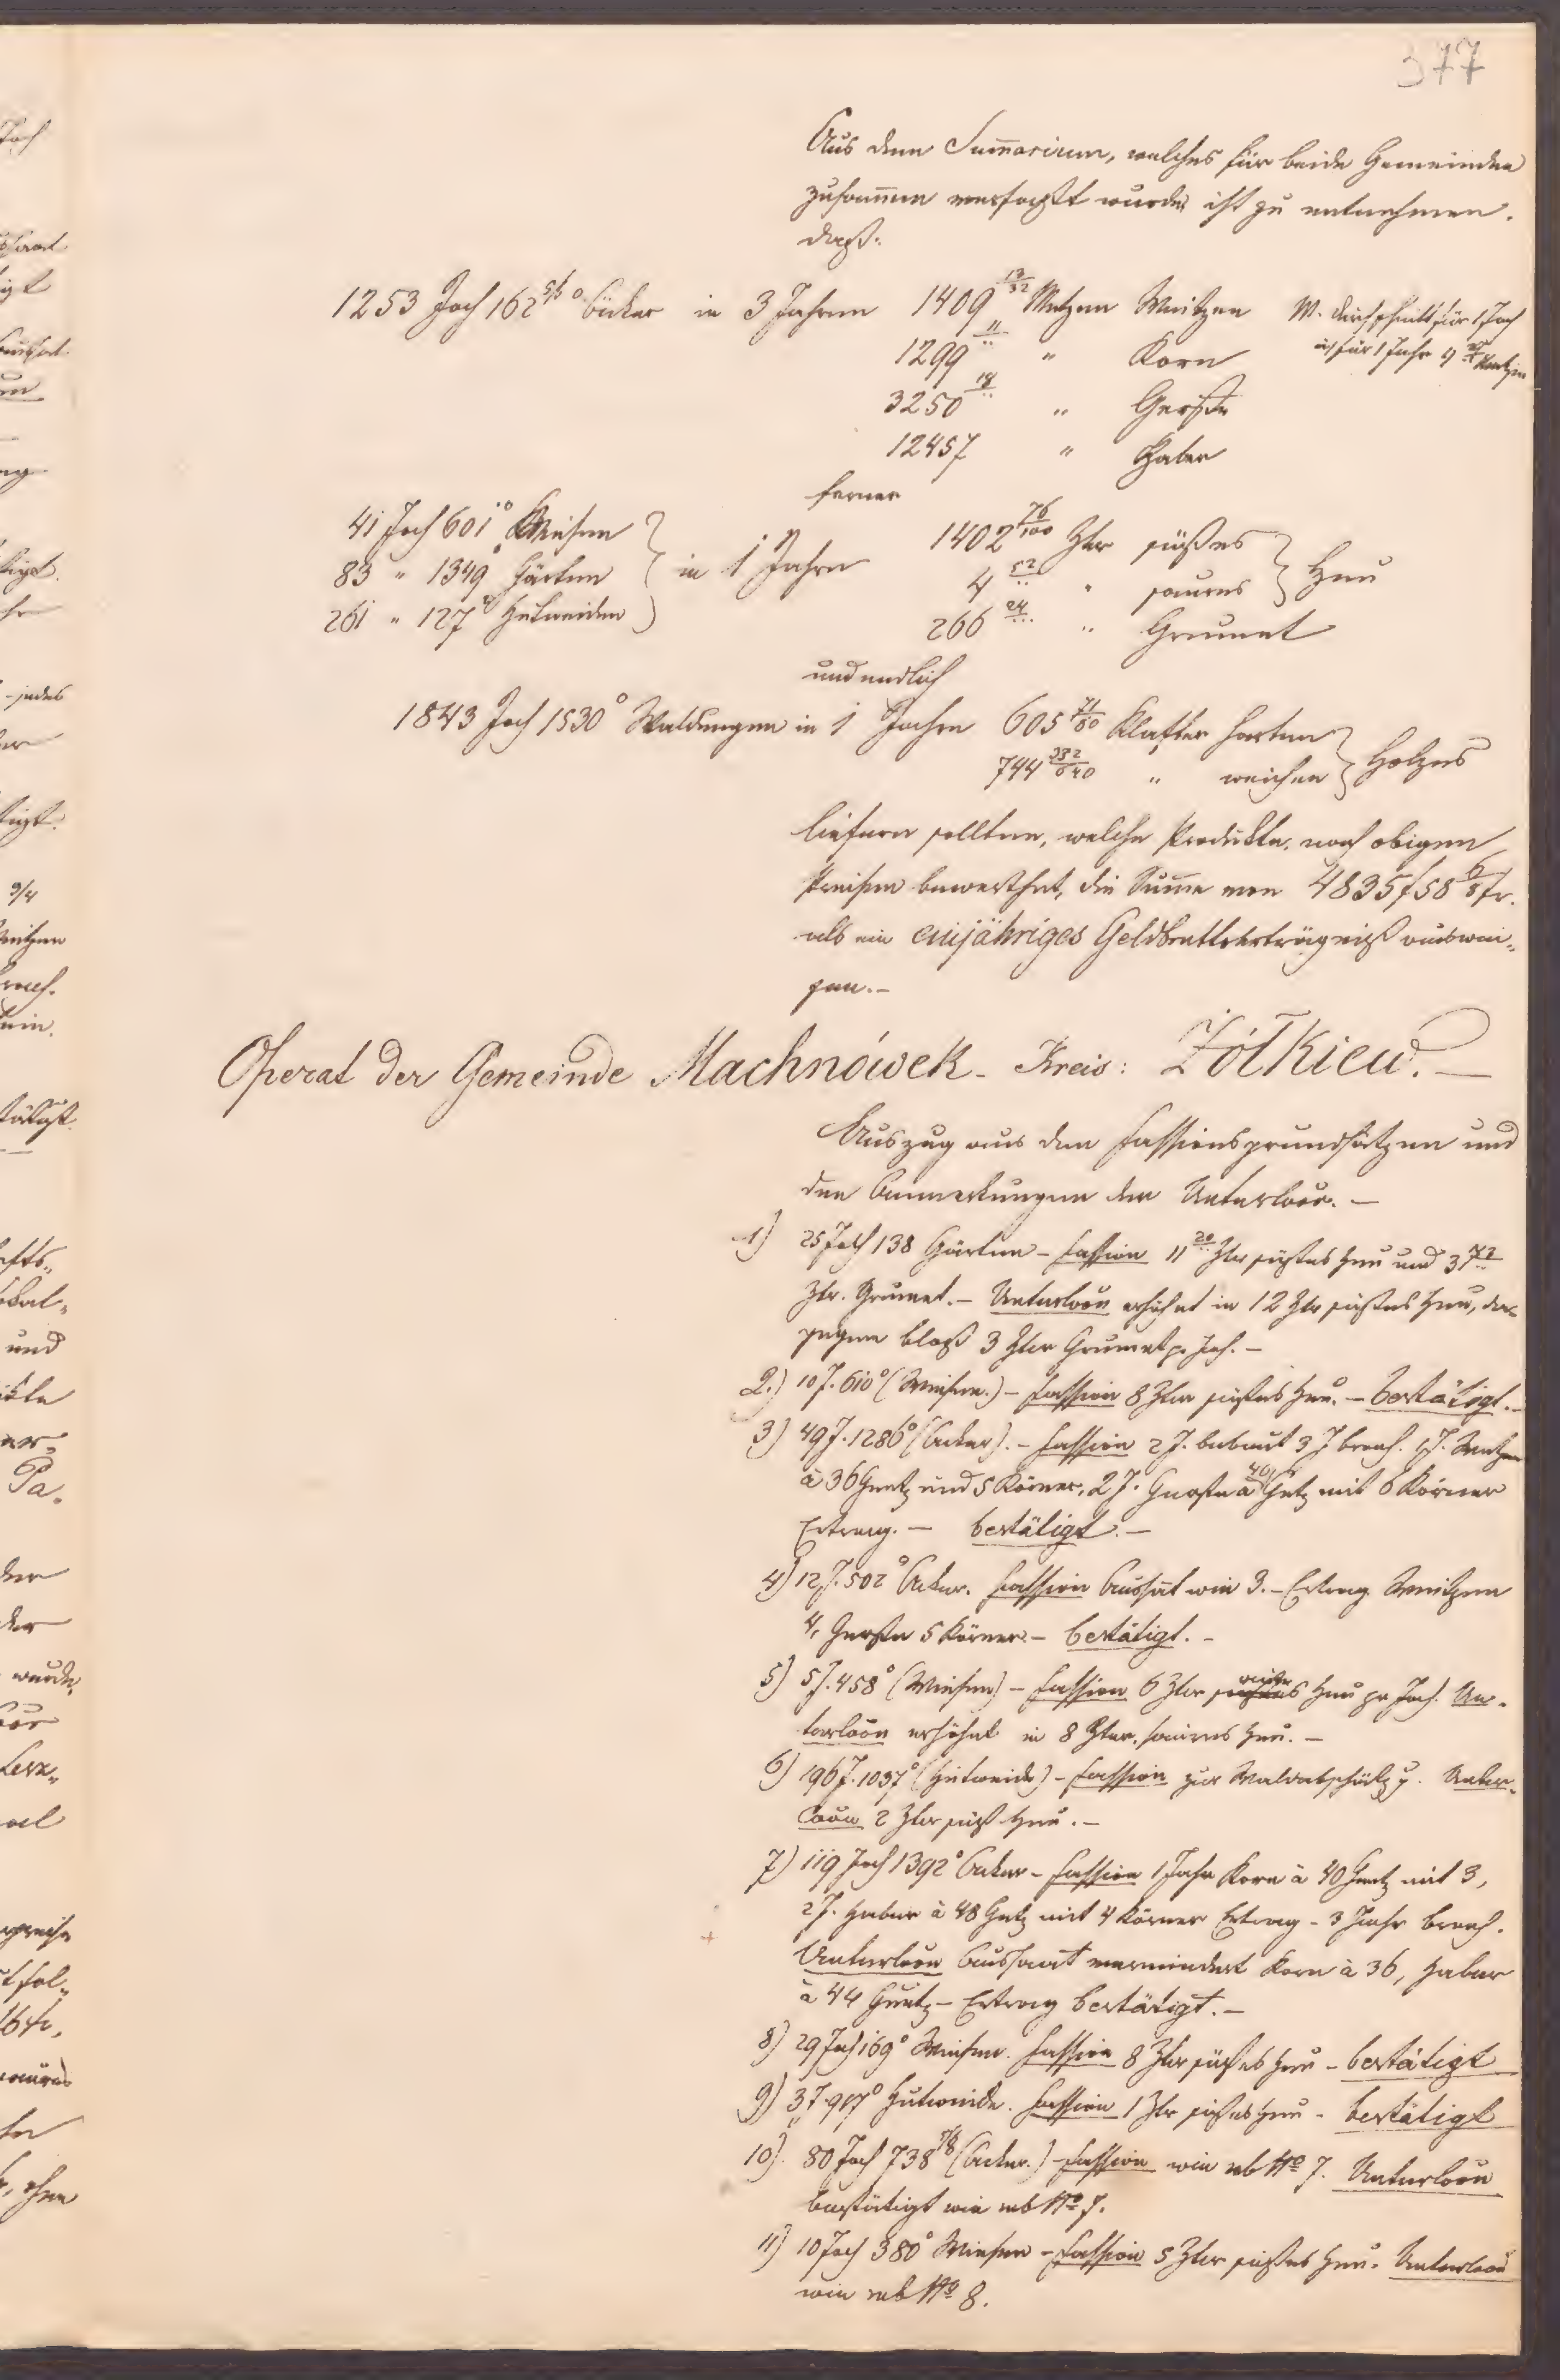 377
Aus dem Sum̄arium, welches für beide Gemeinden
zusam̄en verfaßt wurde, ist zu entnehmen.
daß:
1253 Joch 162 5/6° Äcker in 3 Jahren 1409 13/32 Metzen Weitzen
1299 11/.. " Korn
3250 18/.. " Gerste
12457 " Haber
W. durchschnitt für 1 Joch
für 1 Jahr 4 Metzen
ferner
41 Joch 601° Wiesen
83 " 1349° Gärten
261 " 127° Hutweiden
in 1 Jahre
1402 76/100 Ztr süßes
4 52/.. " saures
Heu
266 24/... " Grumet
und endlich
1843 Joch 1530° Waldungen in 1 Jahre 605 71/80 Klafter harten
744 332/640 " weichen
Holzes
liefern sollten, welche Produkte, nach obigen
Preisen bewerthet, die Sum̄e von 4835 f 58 6/8 kr.
als ein einjähriges Geldbruttoerträgniß auswei„
sen.–
Operat der Gemeinde Machnówek – Kreis: Żółkiew. –
Auszug aus den Fassionsgrundsätzen und
den Anmerkungen der Unterloco. –
1) 25 Joch 138 Gärten – Fassion 11 20/.. Ztr süßes Heu und 3 72/..
Ztr. Grumet. – Unterloco erhöhet in 12 Ztr süßes Heu, da-
gegen bloß 3 Ztr Grumet p. Joch. –
2.) 10 J. 610° (Wiesen.) – Fassion 8 Ztr süßes Heu. – bestätigt. –
3) 49 J. 1286° (Äcker). – Fassion 2 J. bebaut 3 J brach. 1 J. Weitzen
à 36 Gartz und 5 Körner, 2 J. Gerste à 40 Gtz mit 6 Körner
Ertrag. – bestätigt. –
4) 12 J. 502° Äcker. Fassion Aussat wie 3. – Ertrag Weitzen
4, Gerste 5 Körner – bestätigt. –
5) 5 J. 458° (Wiesen) – Fassion 6 Ztr Heu pr Joch. Un-
terloco erhöhet in 8 Ztr. saures Heu. –
6) 196 J. 1037° (Hutweide) – Fassion zur Waldabschätzg. Unter-
loco 2 Ztr süß Heu. –
7) 119 Joch 1392° Äcker – Fassion 1 Jahr Korn à 40 Gartz mit 3,
2 J. Haber à 48 Gtz mit 4 Körner Ertrag – 3 Jahr brach.
Unterloco Aussaat vermindert Korn à 36, Haber
à 44 Gartz – Ertrag bestätigt. –
8) 29 Joch 169° Wiesen. Fassion 8 Ztr süßes Heu – bestätigt
9) 3 J. 917° Hutweide. Fassion 1 Ztr süßes Heu – bestätigt
10) 80 Joch 738 7/8 (Äcker.) – Fassion wie ob No 7. Unterloco
bestätigt wie ob No 7.
11) 10 Joch 380° Wiesen – Fassion 5 Ztr süßes Heu. Unterloco
wie ob No 8.